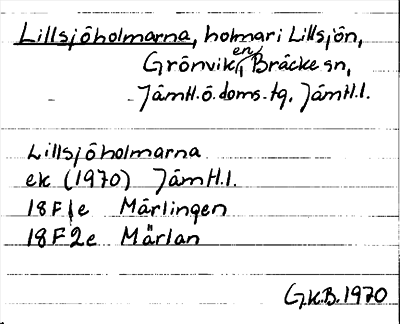 Lillsjöholmarna, holmar i Lillsjön,
Grönviken, Bräcke sn,
Jämtl.ö.doms.tg, Jämtl.l.
Lillsjöholmarna
ek (1970) Jämtl.l.
18F1e Märlingen
18F2e Märlan
G.K.B. 1970